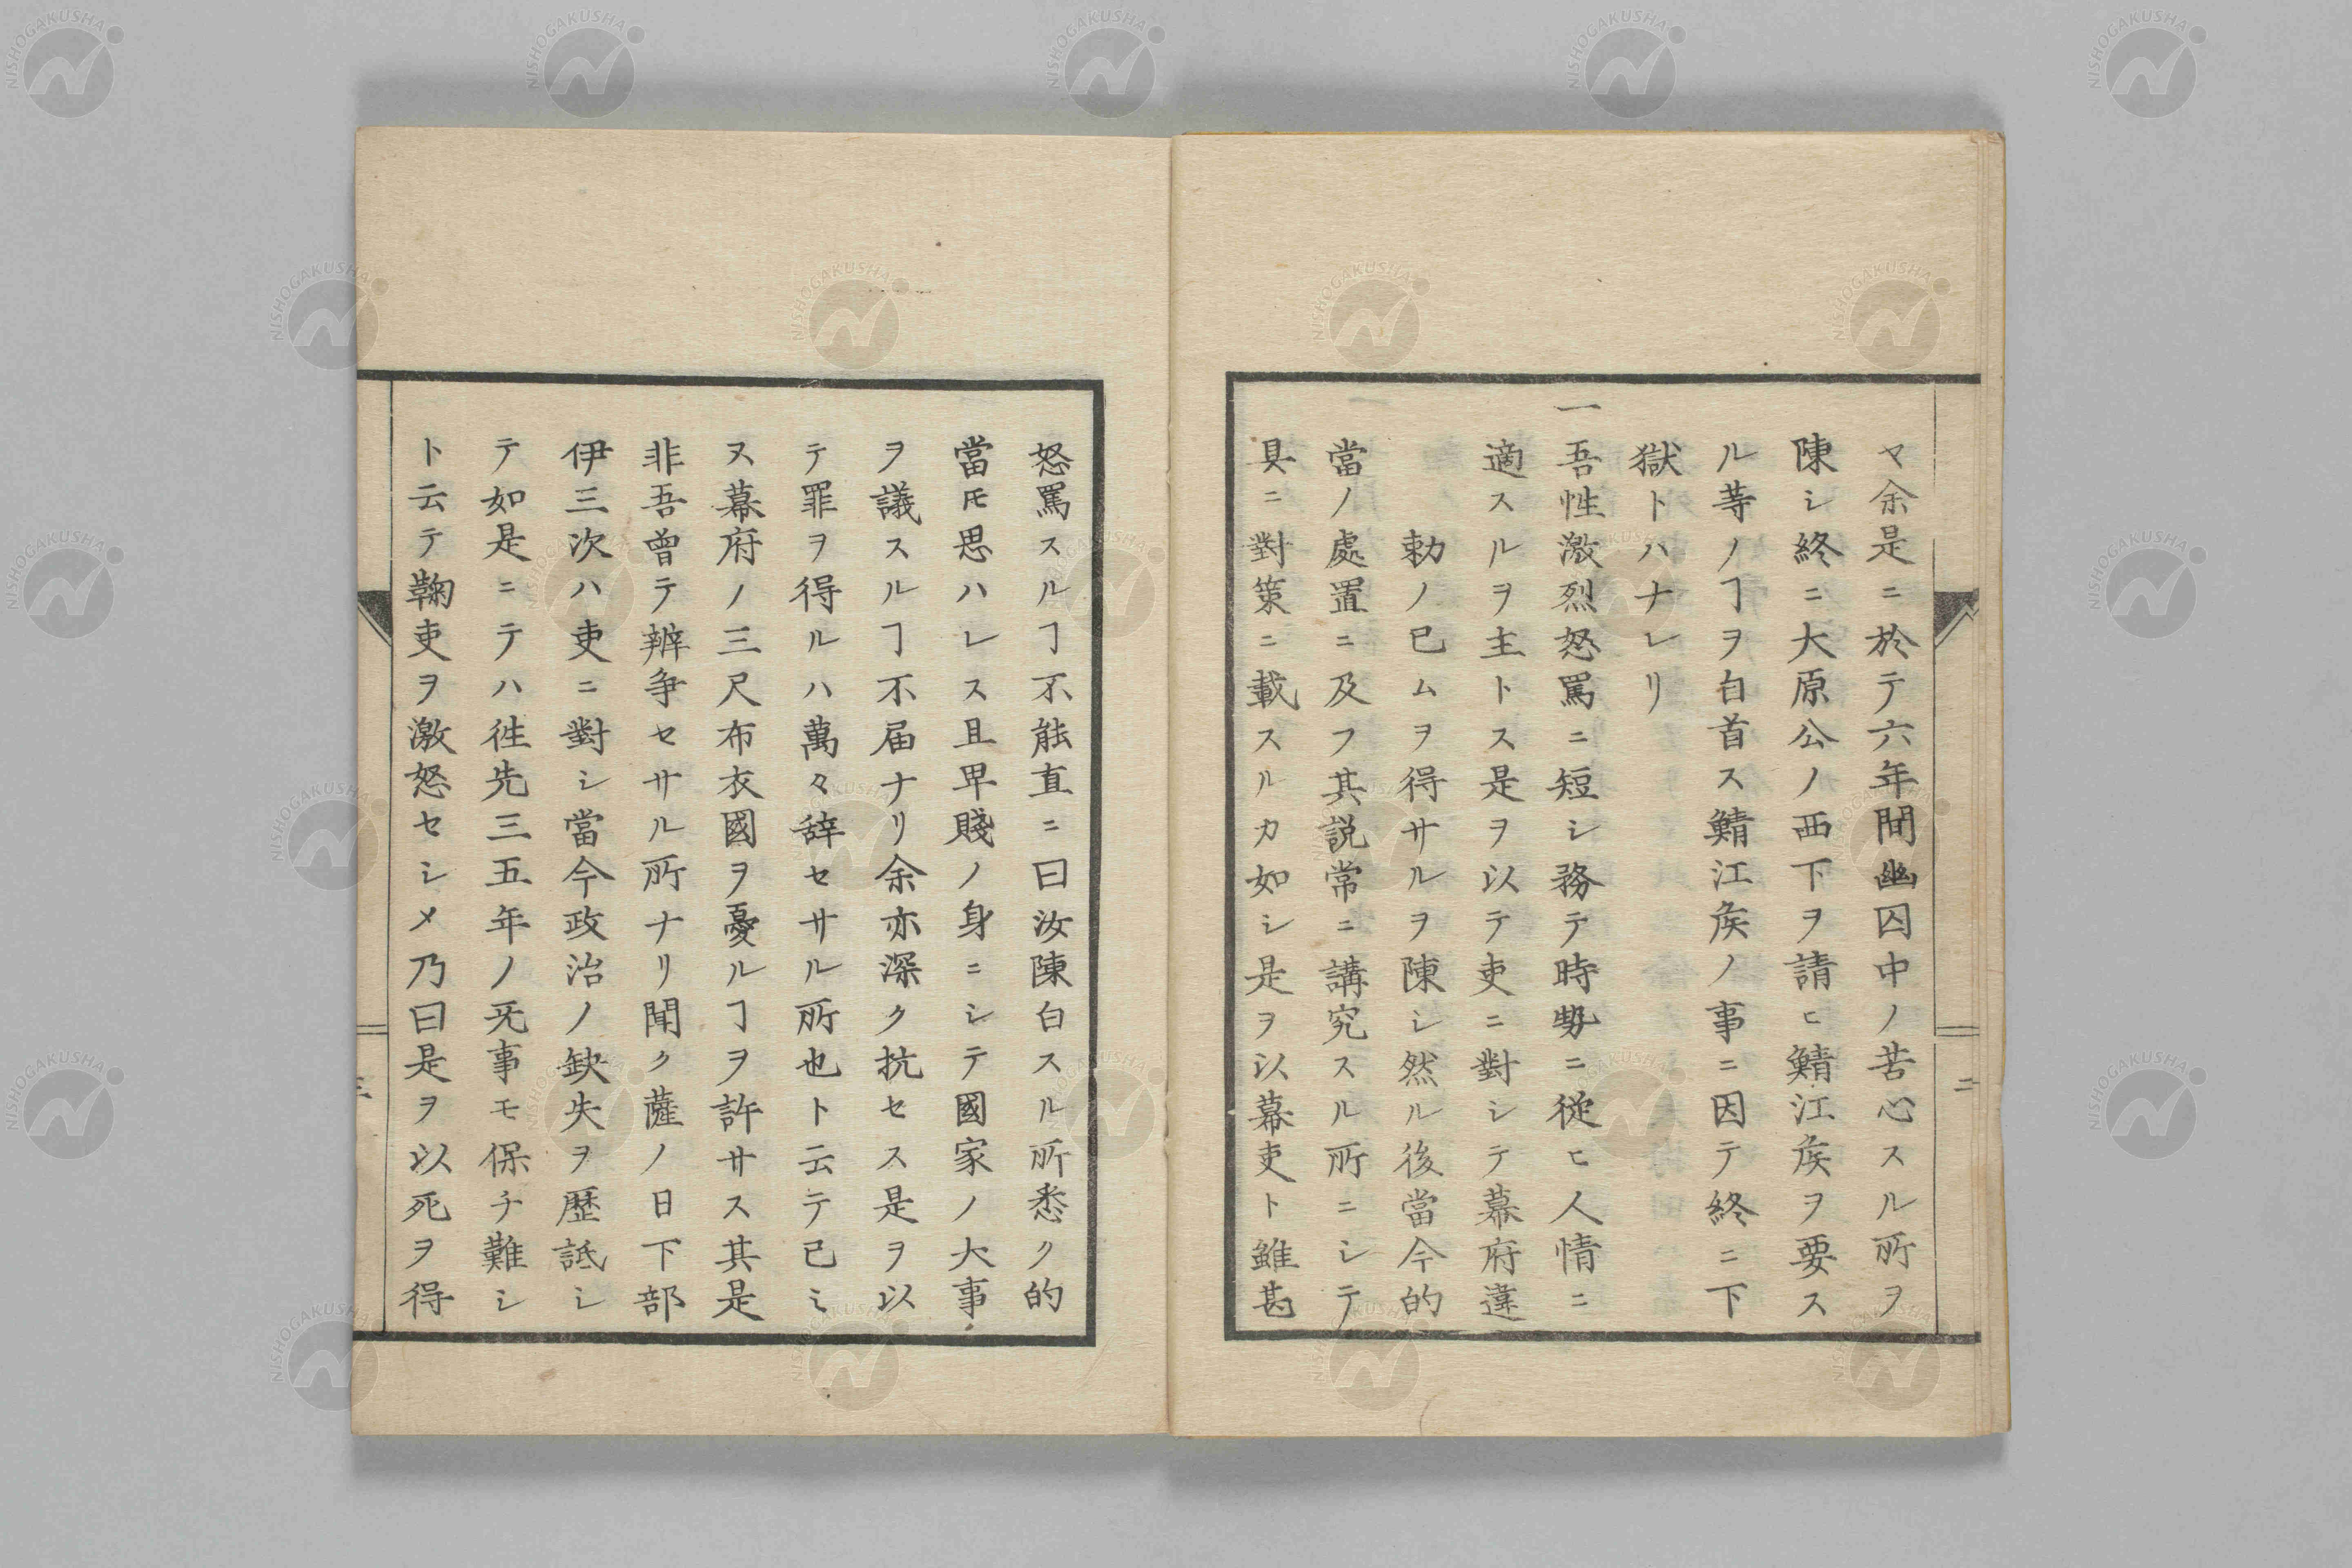 マ余是ニ於テ六年間幽囚中ノ苦心スル所ヲ
陳シ終ニ大原公ノ西下ヲ請ヒ鯖江矦ヲ要ス
ル等ノヿヲ自首ス鯖江矦ノ事ニ因テ終ニ下
獄トハナレリ
一吾性激烈怒罵ニ短シ務テ時勢ニ從ヒ人情ニ
適スルヲ主トス是ヲ以テ吏ニ對シテ幕府違
勅ノ已ムヲ得サルヲ陳シ然ル後當今的
當ノ處置ニ及フ其説常ニ講究スル所ニシテ
具ニ對策ニ載スルカ如シ是ヲ以幕吏ト雖甚
二
怒罵スルヿ不能直ニ曰汝陳白スル所悉ク的
當𪜈思ハレス且卑賤ノ身ニシテ國家ノ大事
ヲ議スルヿ不届ナリ余亦深ク抗セス是ヲ以
テ罪ヲ得ルハ萬々辞セサル所也ト云テ已ミ
ヌ幕府ノ三尺布衣國ヲ憂ルヿヲ許サス其是
非吾曾テ辨争セサル所ナリ聞ク薩ノ日下部
伊三次ハ吏ニ對シ當今政治ノ缺失ヲ歴詆シ
テ如是ニテハ徃先三五年ノ无事モ保チ難シ
ト云テ鞠吏ヲ激怒セシメ乃曰是ヲ以死ヲ得
NISHOGAKUSHA